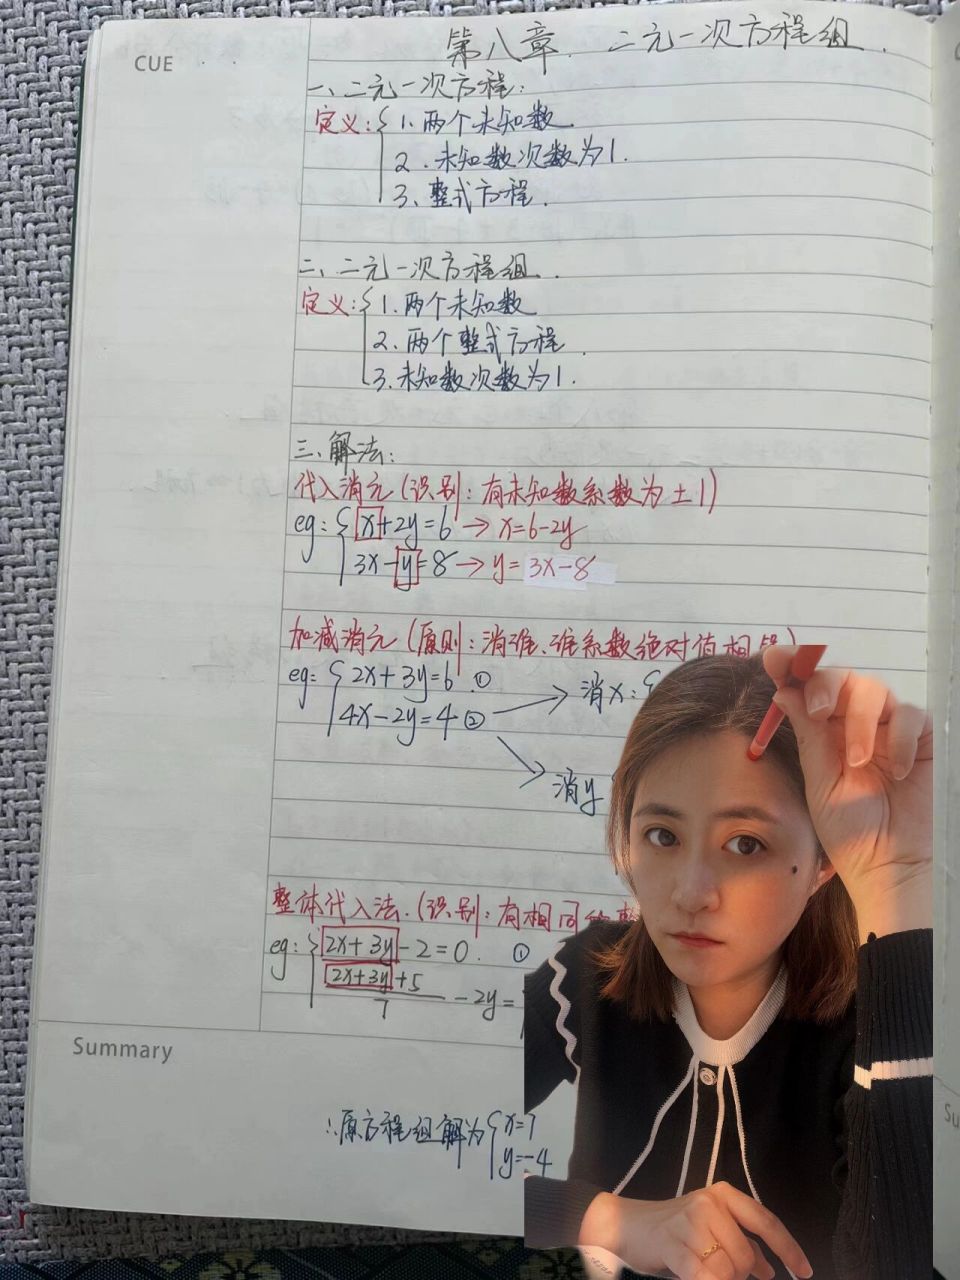 第八章. 二元一次方程组.
CUE
一、二元一次方程:
定义:{1.两个未知数
2.未知数次数为1.
3.整式方程.
二、二元一次方程组.
定义:{1.两个未知数
2.两个整式方程.
3.未知数次数为1.
三、解法:
代入消元(识别:有未知数系数为±1)
eg:{x+2y=6→x=6-2y
3x-y=8→y=3x-8
加减消元(原则:消谁、谁系数绝对值相等)
eg:{2x+3y=6.①
消x:{
4x-2y=4②
消y
整体代入法.(识别:有相同的整
eg:{2x+3y-2=0. ①
(2x+3y+5)/7-2y=
Summary
∴原方程组解为{x=7
y=-4